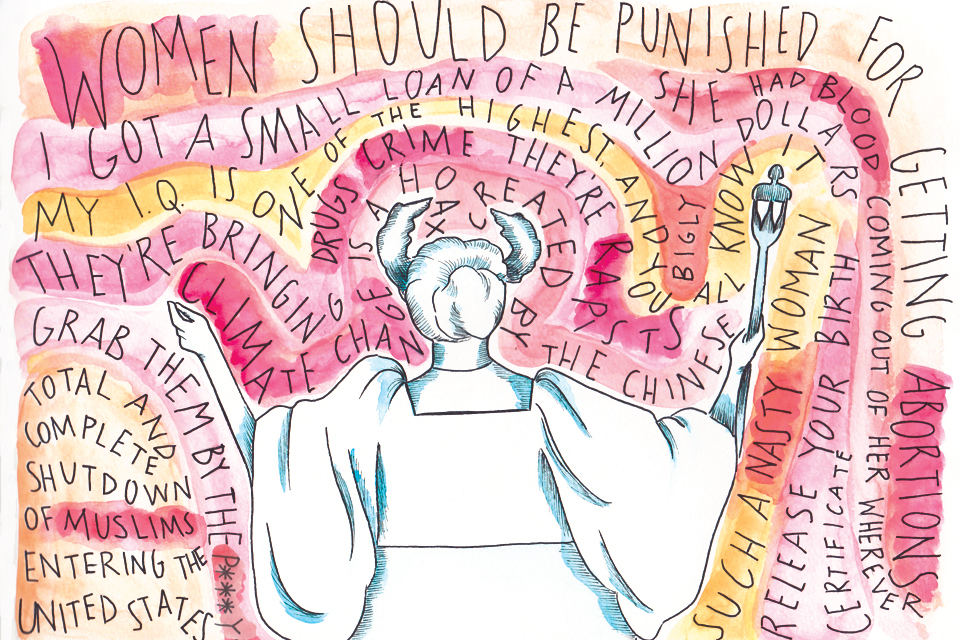 WOMEN SHOULD BE PUNISHED FOR GETTING ABORTIONS
I GOT A SMALL LOAN OF A MILLION DOLLARS
SHE HAD BLOOD COMING OUT OF HER WHEREVER
MY I.Q. IS ONE OF THE HIGHEST. AND YOU ALL KNOW IT
BIGLY
THEY'RE BRINGING DRUGS CRIME THEY'RE RAPISTS
CLIMATE CHANGE IS A HOAX CREATED BY THE CHINESE
GRAB THEM BY THE P****Y
TOTAL AND
COMPLETE
SHUTDOWN
OF MUSLIMS
ENTERING THE
UNITED STATES
SUCH A NASTY WOMAN
RELEASE YOUR BIRTH
CERTIFICATE